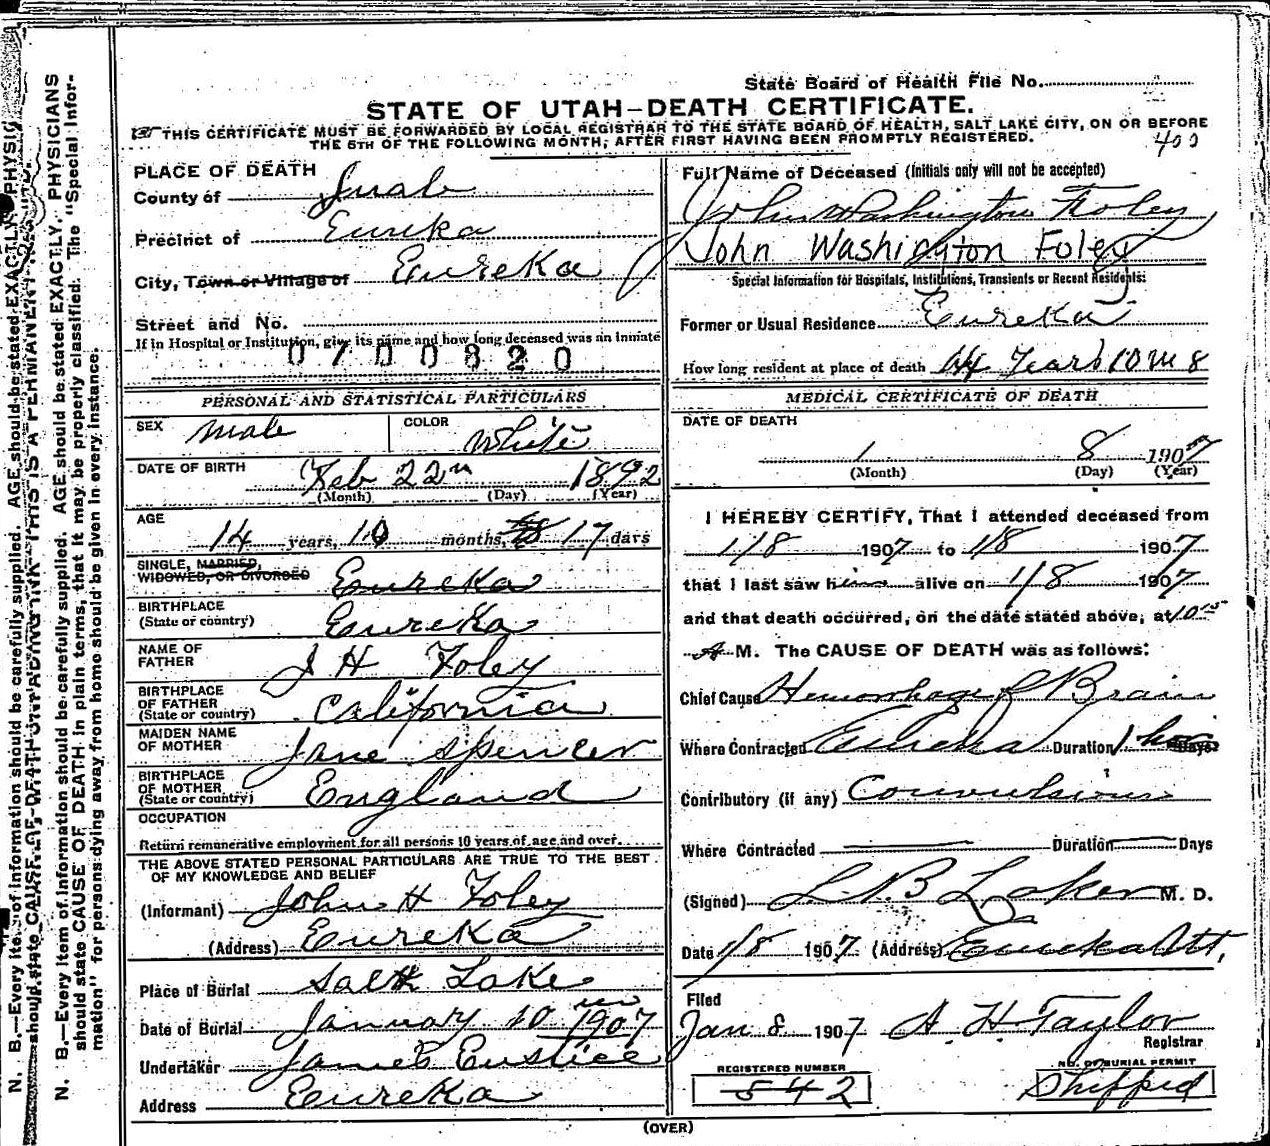 State Board of Health File No.
STATE OF UTAH—DEATH CERTIFICATE.
THIS CERTIFICATE MUST BE FORWARDED BY LOCAL REGISTRAR TO THE STATE BOARD OF HEALTH, SALT LAKE CITY, ON OR BEFORE
THE 5TH OF THE FOLLOWING MONTH, AFTER FIRST HAVING BEEN PROMPTLY REGISTERED.
400
PLACE OF DEATH
County of Juab
Precinct of Eureka
City, Town or Village of Eureka
Street and No.
If in Hospital or Institution, give its name and how long deceased was an inmate
0700820
PERSONAL AND STATISTICAL PARTICULARS
SEX Male COLOR White
DATE OF BIRTH Feb 22nd 1892
(Month) (Day) (Year)
AGE
14 years, 10 months, 17 days
SINGLE, MARRIED,
WIDOWED, OR DIVORCED Eureka
BIRTHPLACE
(State or country) Eureka
NAME OF
FATHER J H Foley
BIRTHPLACE
OF FATHER
(State or country) California
MAIDEN NAME
OF MOTHER Jane Spencer
BIRTHPLACE
OF MOTHER
(State or country) England
OCCUPATION
Return remunerative employment for all persons 10 years of age and over.
THE ABOVE STATED PERSONAL PARTICULARS ARE TRUE TO THE BEST
OF MY KNOWLEDGE AND BELIEF
(Informant) John H Foley
(Address) Eureka
Place of Burial Salt Lake
Date of Burial January 10 1907
Undertaker James Eustice
Address Eureka
Full Name of Deceased (Initials only will not be accepted)
John Washington Foley
John Washington Foley
Special Information for Hospitals, Institutions, Transients or Recent Residents:
Former or Usual Residence Eureka
How long resident at place of death 14 Years 10 m 8
MEDICAL CERTIFICATE OF DEATH
DATE OF DEATH
1 8 1907
(Month) (Day) (Year)
I HEREBY CERTIFY, That I attended deceased from
1/8 1907 to 1/8 1907
that I last saw him alive on 1/8 1907
and that death occurred, on the date stated above, at 10 15
A M. The CAUSE OF DEATH was as follows:
Chief Cause Hemorrhage of Brain
Where Contracted Eureka Duration 1 hour Days
Contributory (if any) Convulsions
Where Contracted Duration Days
(Signed) L. B. Laker M. D.
Date 1/8 1907 (Address) Eureka Ut.
Filed
Jan 8 1907 A. H. Taylor
Registrar
REGISTERED NUMBER
542
NO. OF BURIAL PERMIT
Shipped
(OVER)
N. B.—Every item of information should be carefully supplied. AGE should be stated EXACTLY. PHYSICIANS
should state CAUSE OF DEATH in plain terms, that it may be properly classified. The "Special Infor-
mation" for persons dying away from home should be given in every instance.
N. B.—Every ite of information should be carefully supplied. AGE should be stated EXACTLY. PHYSIC